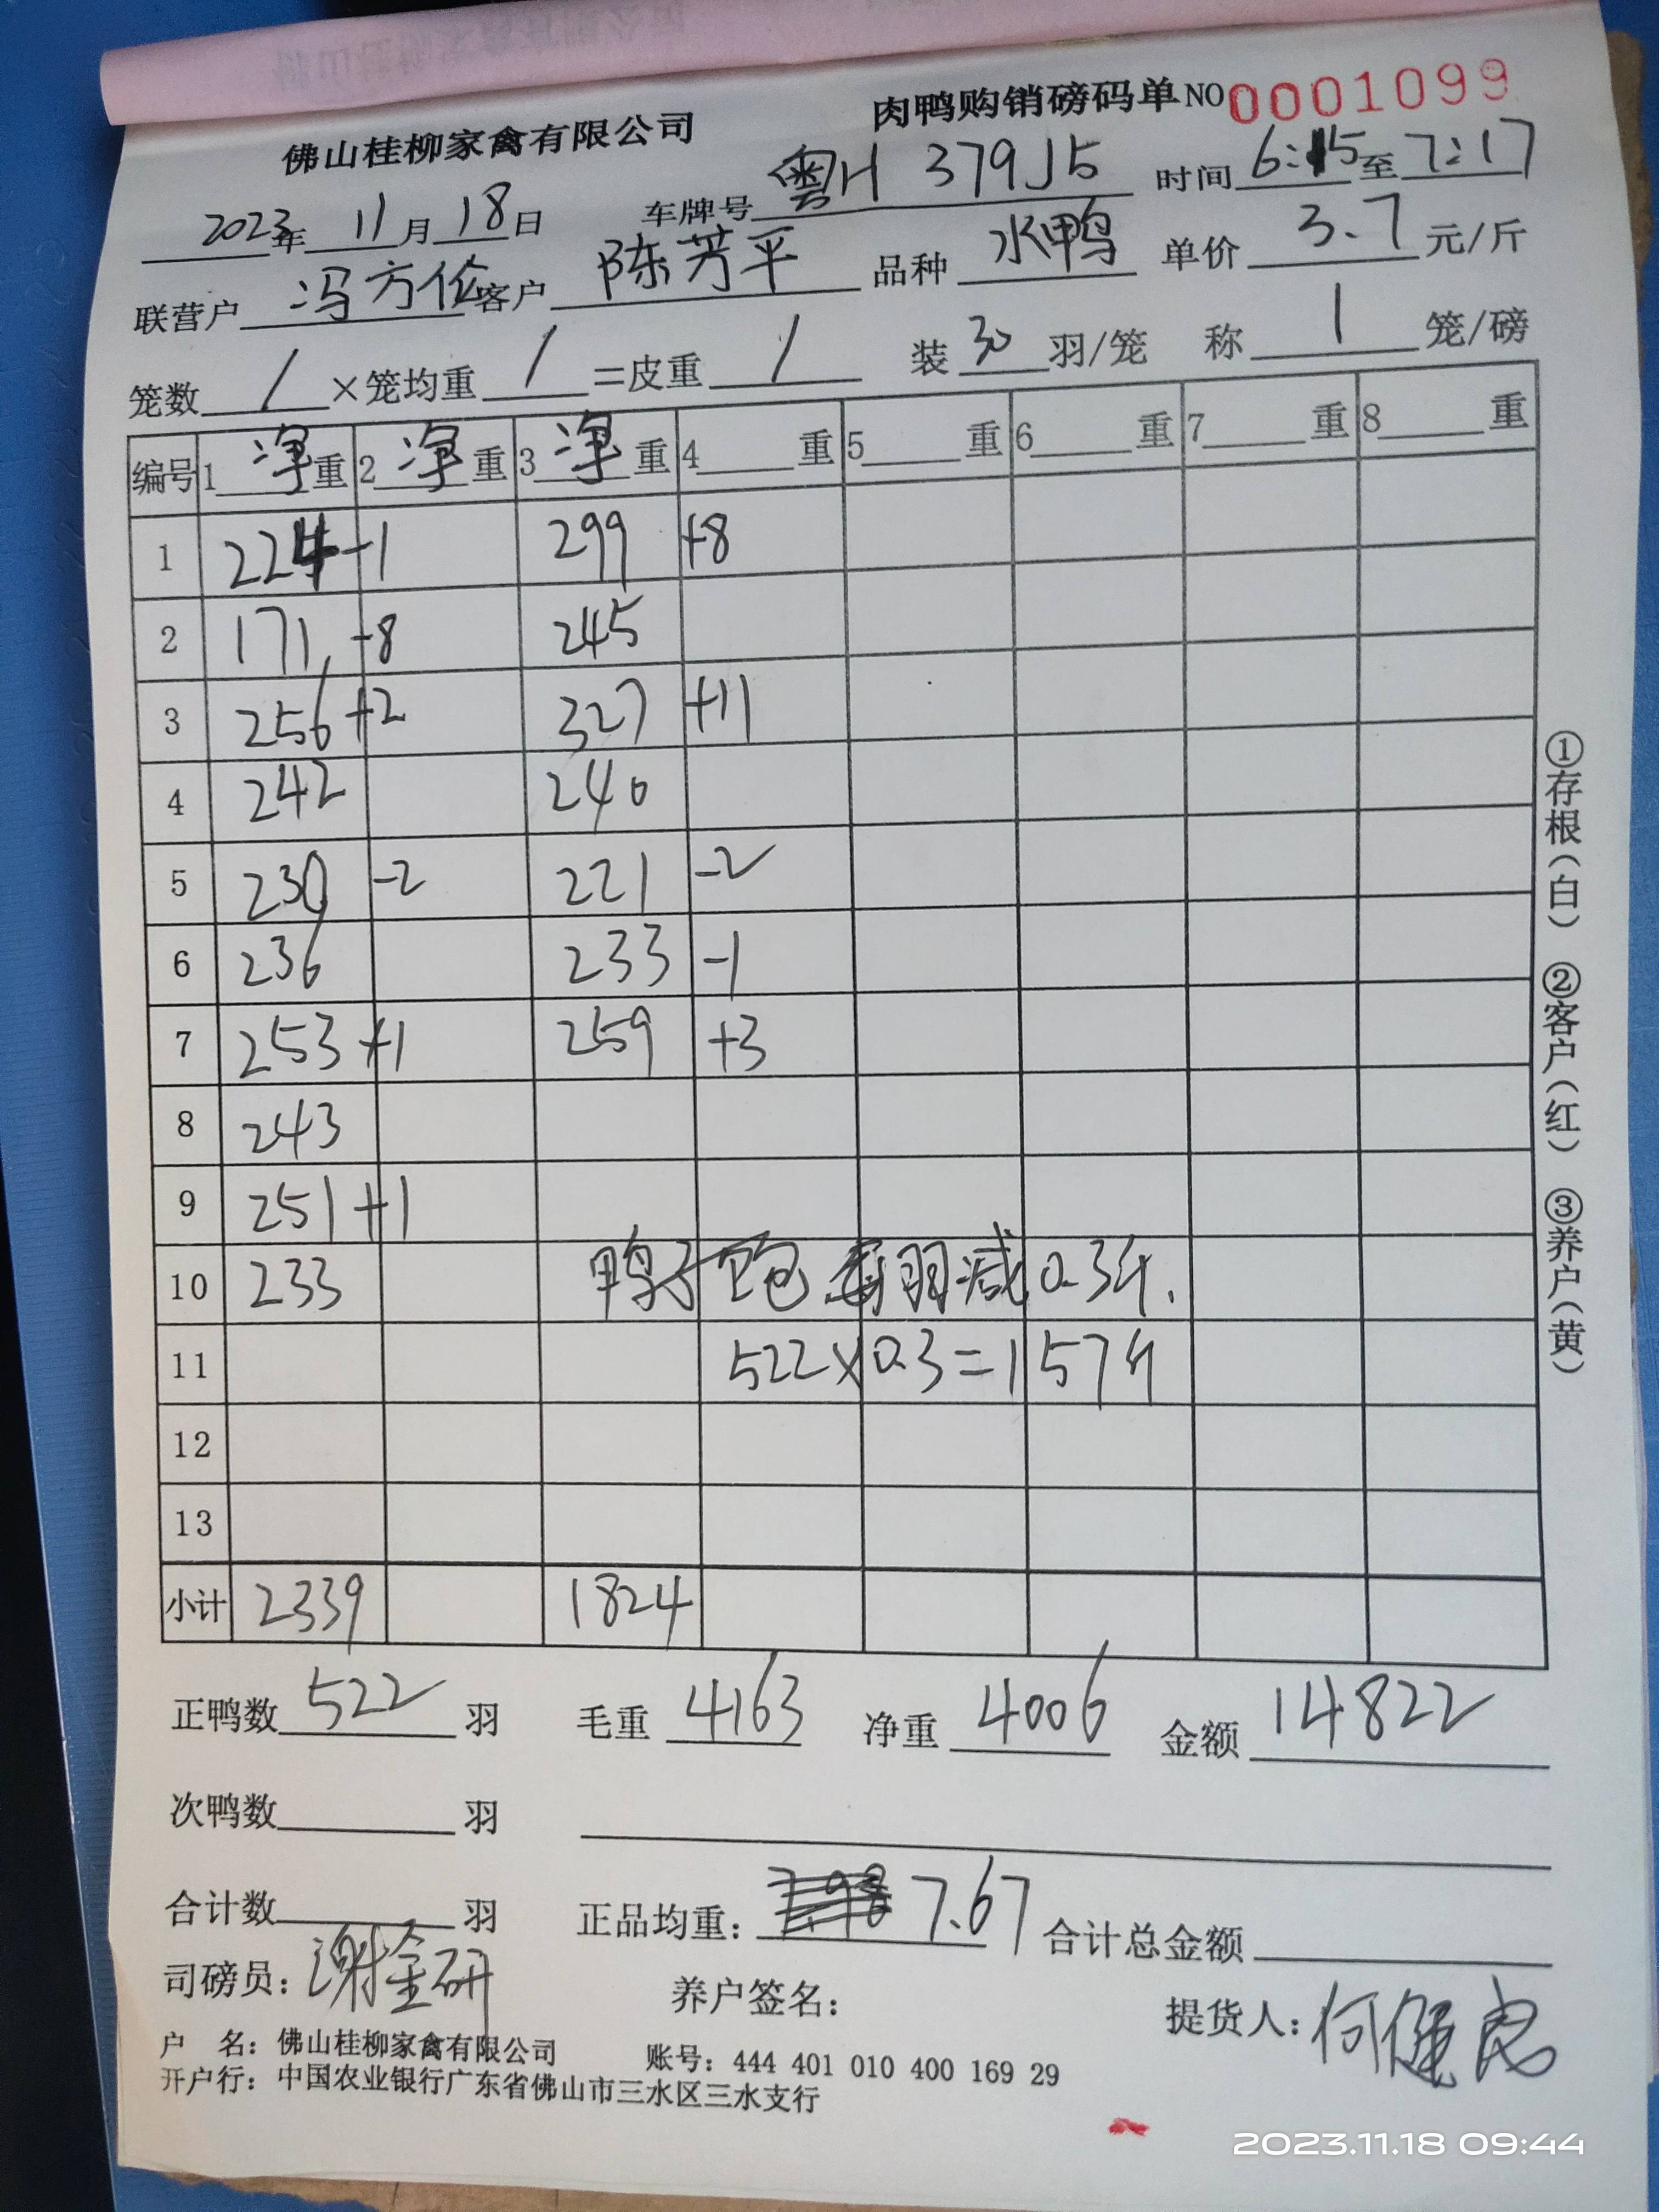 佛山桂柳家禽有限公司 肉鸭购销磅码单 NO 0001099
2023年 11月 18日 车牌号 粤H 379J5 时间 6:15 至 7:17
联营户 冯方伦 客户 陈芳平 品种 水鸭 单价 3.7 元/斤
笼数 / ×笼均重 / =皮重 / 装 30 羽/笼 称 1 笼/磅
编号 1 净 重 2 净 重 3 净 重 4 重 5 重 6 重 7 重 8 重
1 224 -1 299 +8
2 171 -8 245
3 256 +2 327 +11
4 242 240
5 230 -2 221 -2
6 236 233 -1
7 253 +1 259 +3
8 243
9 251 +1
10 233 鸭子饱每羽减0.3斤.
11 522×0.3=157斤
12
13
小计 2339 1824
正鸭数 522 羽 毛重 4163 净重 4006 金额 14822
次鸭数 羽
合计数 羽 正品均重: 7.67 合计总金额
司磅员: 谢金研 养户签名: 提货人: 何
户 名: 佛山桂柳家禽有限公司 账号: 444 401 010 400 169 29
开户行: 中国农业银行广东省佛山市三水区三水支行
①存根(白) ②客户(红) ③养户(黄)
2023.11.18 09:44